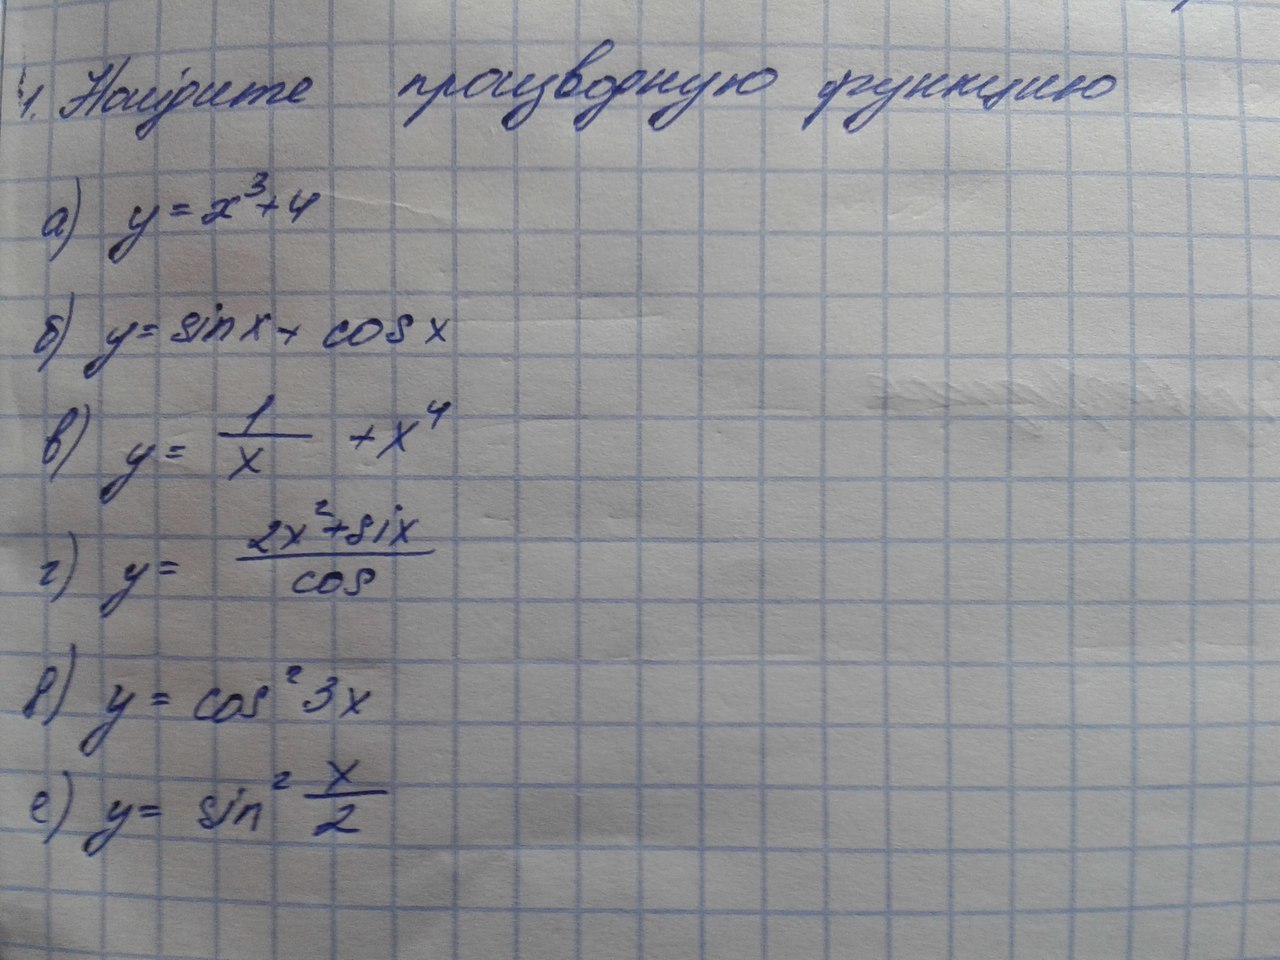 1. Найдите производную функцию
а) y = x³+4
б) y = sin x + cos x
в) y = 1/x + x⁴
г) y = (2x²+six)/cos
д) y = cos² 3x
е) y = sin² x/2